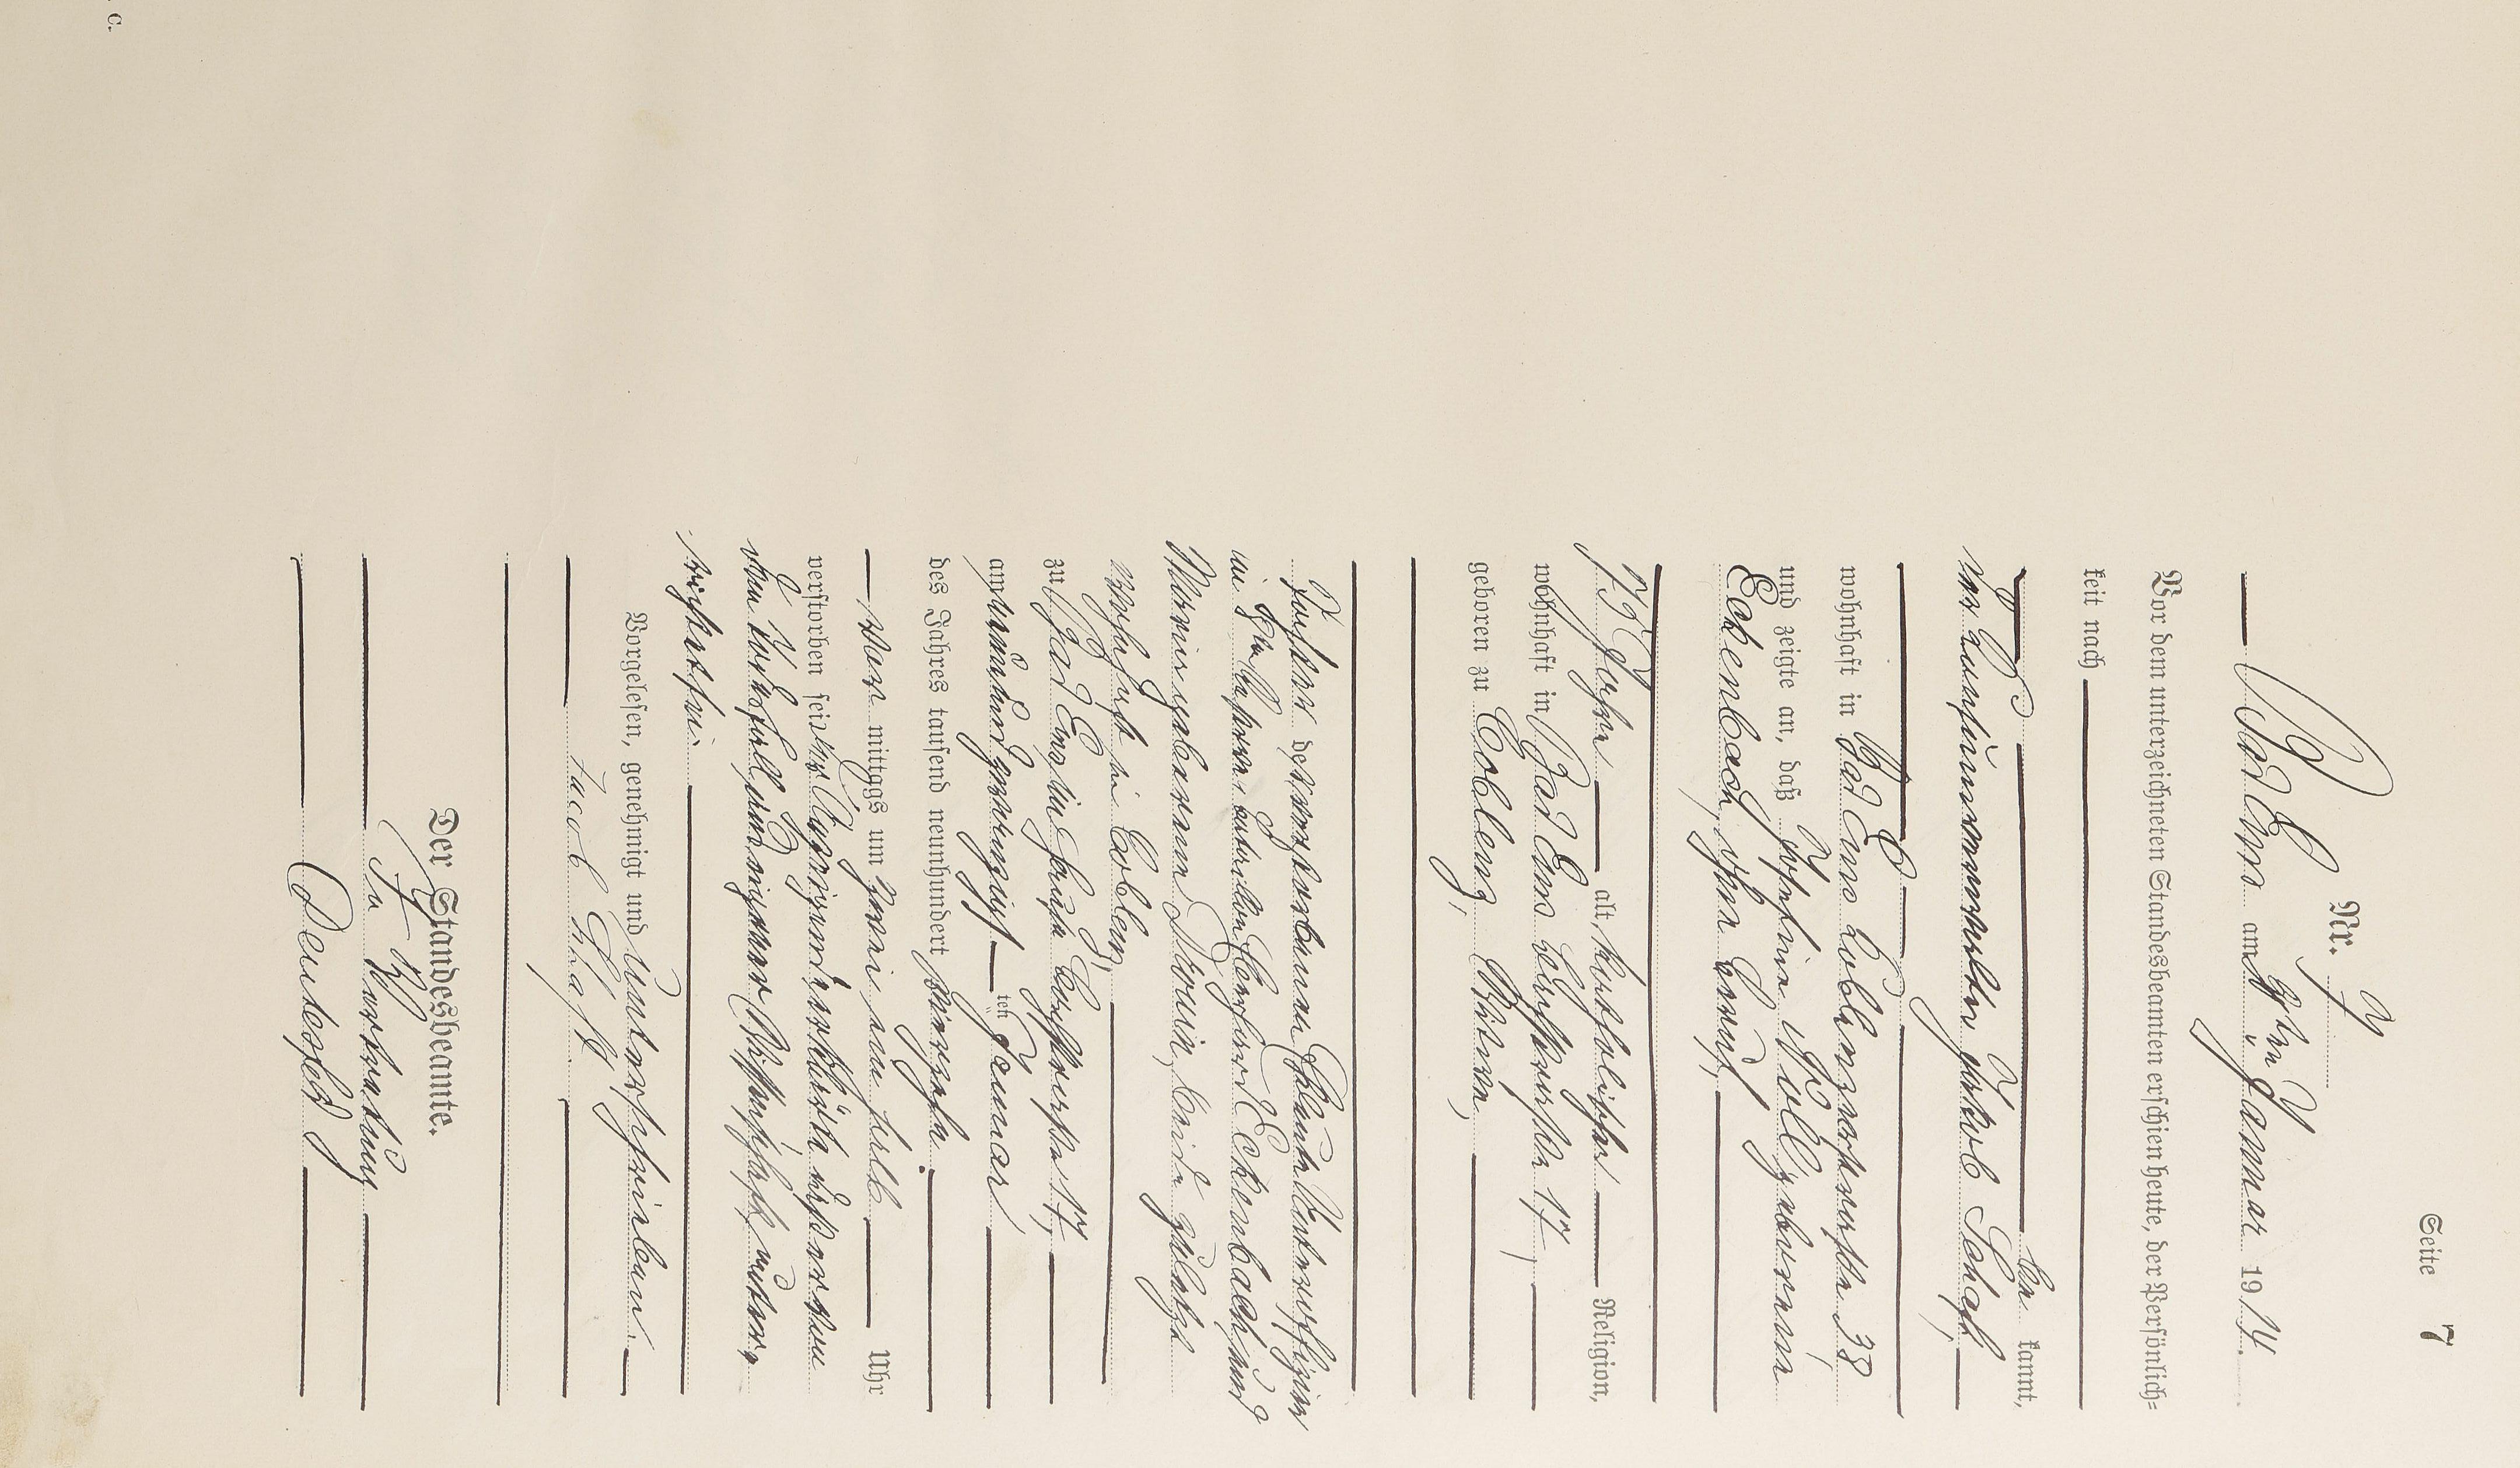 Seite 7
Nr. 7
Bad Ems am 28ten Januar 1914.
Vor dem unterzeichneten Standesbeamten erschien heute, der Persönlich-
keit nach
be kannt,
der Hausverwalter Jakob Schaf,
wohnhaft in Bad Ems Coblenzerstrasse 38
und zeigte an, daß Josefine Moll geborene
Eckenbach, ohne Beruf,
73 Jahre alt, katholischer Religion,
wohnhaft in Bad Ems Bachstrasse 17,
geboren zu Coblenz, Witwe,
Tochter der verstorbenen Eheleute
Eckenbach und
geborenen beide zuletzt
wohnhaft in Coblenz,
zu Bad Ems, im Hause Bachstrasse 17,
am siebenundzwanzigsten Januar
des Jahres tausend neunhundert vierzehn
mittags um zwei ein halb Uhr
verstorben sei. Der Anzeigende erklärte daß er von
dem Sterbefall aus eigener Wissenschaft unter-
richtet sei.
Vorgelesen, genehmigt und unterschrieben
Jacob Schaff
Der Standesbeamte.
In Vertretung
c.